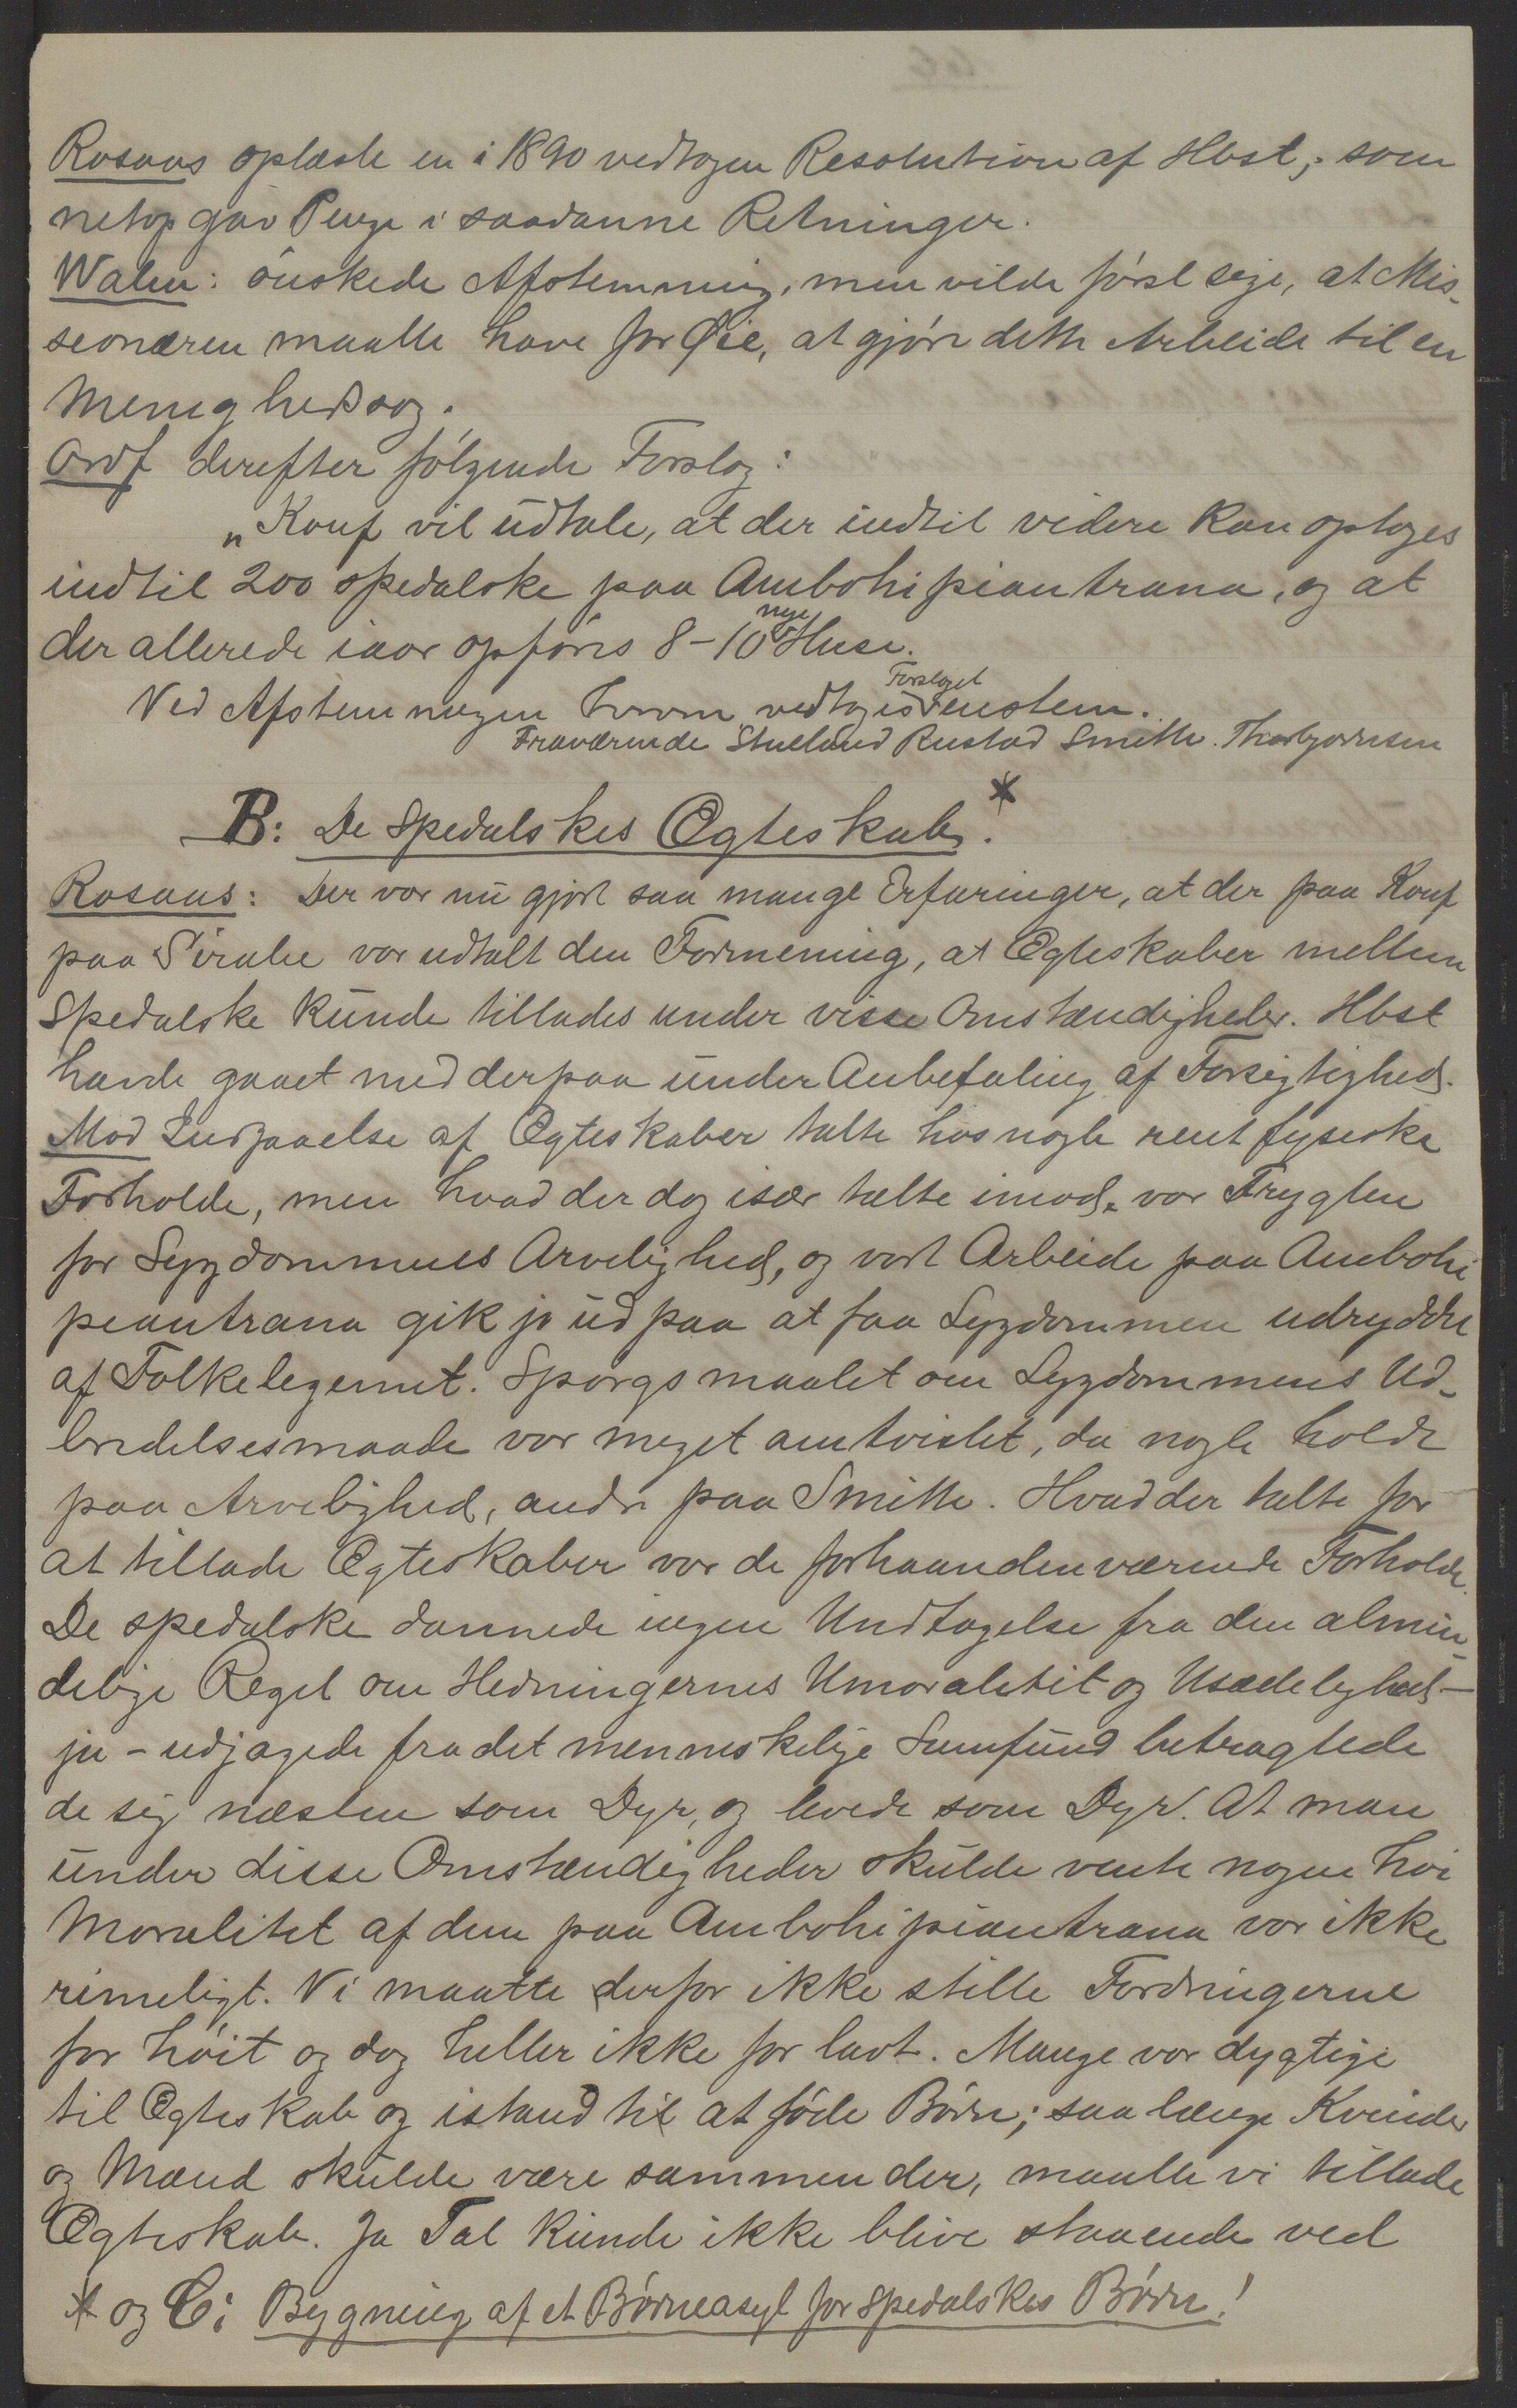 Rosaas oplæste en i 1890 vedtagen Resolution af Hbst, som
netop gav Penge i saadanne Retninger.
Walen: ønskede Afstemning, men vilde først sige, at Mis-
sionæren maatte have for Øie, at gjøre dette Arbeide til en
Menighedssag.
Ordf derefter følgende Forslag:
"Konf vil udtale, at der indtil videre kan optages
indtil 200 spedalske paa Ambohipiantrana, og at
der allerede iaar opføres 8-10 nye Huse.
Ved Afstemningen herom vedtages Forslaget enstem.
Fraværende Stueland Rustad Smith. Thorbjørnsen
B: De Spedalskes Ægteskab. *
Rosaas: Der var nu gjort saa mange Erfaringer, at der paa Konf
paa Sirabe var udtalt den Formening, at Ægteskaber mellem
Spedalske kunde tillades under visse Omstændigheder. Hbst
havde gaaet med derpaa under Anbefaling af Forsigtighed.
Mod Indgaaelse af Ægteskaber talte hos nogle rent fysiske
Forholde, men hvad der dog især talte imod, var Frygten
for Sygdommens Arvelighed, og vort Arbeide paa Ambohi
piantrana gik jo ud paa at faa Sygdommen udryddet
af Folkelegemet. Spørgsmaalet om Sygdommens Ud-
bredelsesmaade var meget omtvistet, da nogle holdt
paa Arvelighed, andre paa Smitte. Hvad der talte for
at tillade Ægteskaber var de forhaandenværende Forholde.
De spedalske dannede ingen Undtagelse fra den almin-
delige Regel om Hedningernes Umoralitet og Usædelighed -
ja - udjagede fra det menneskelige Samfund betragtede
de sig næsten som Dyr, og levede som Dyr. At man
under disse Omstændigheder skulde vente nogen høi
Moralitet af dem paa Ambohipiantrana var ikke
rimeligt. Vi maatte derfor ikke stille Fordringerne
for høit og dog heller ikke for lavt. Mange var dygtige
til Ægteskab og istand til at føde Børn; saa længe Kvinder
og Mænd skulde være sammen der, maatte vi tillade
Ægteskab. Ja Tal kunde ikke blive staaende ved
* og C: Bygning af et Børneasyl for Spedalskes Børn!